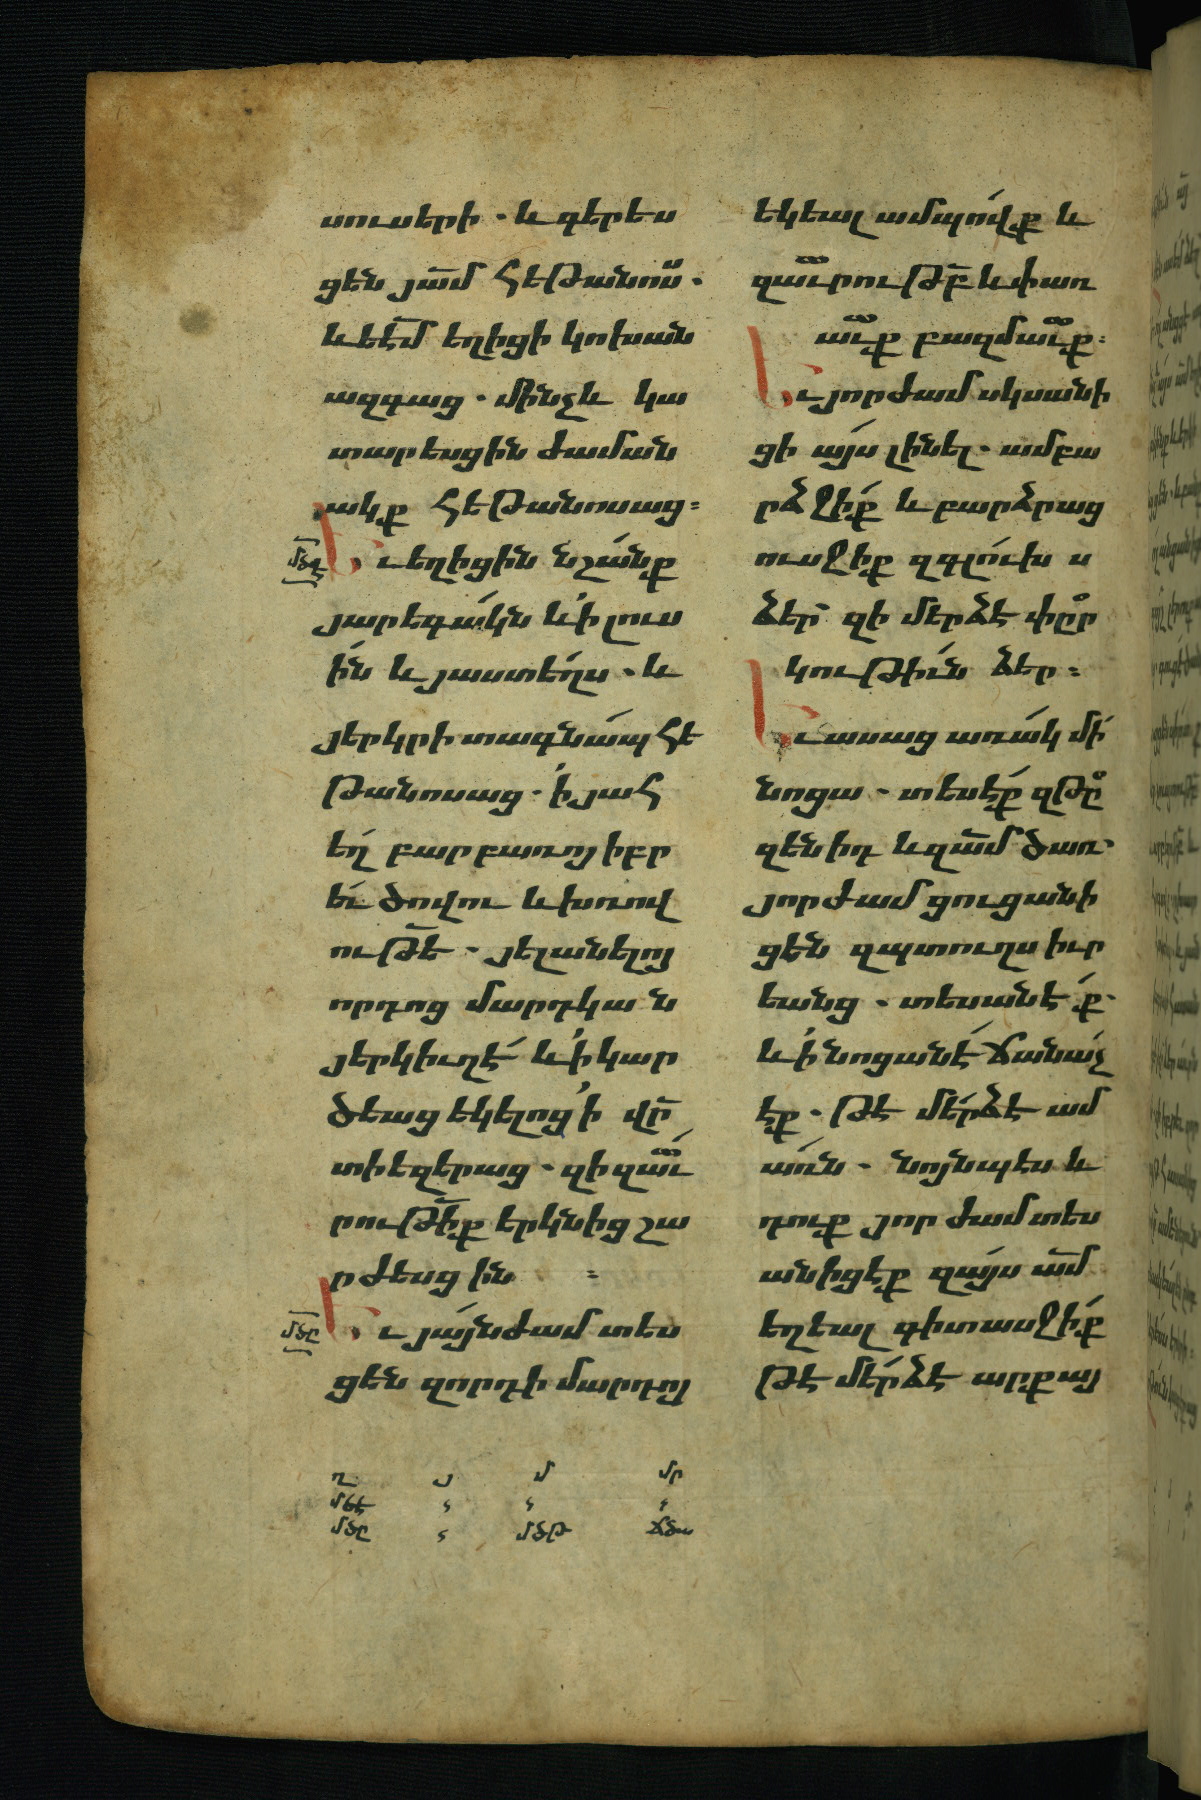 սուսերի. և գերես
ցեն յա̅մ հեթանո̈ս.
և եէ̅մ եղիցի կոխան
ազգաց. մինչև կա
տարեսցին ժաման
ակք հեթանոսաց:
մծէ
Եւ եղիցին նշա́նք
յարեգա́կն և ՚ի լուս
ի́ն և յաստե́ղս. և
յերկրի տագնա́պ հե
թանոսաց. ՚ի յահ
ե́ղ բարբառոյ իբր
և ծովու և խռով
ութե̅. յելանելոյ
որդոց մարդկան
յերկիւղէ́ և ՚ի կար
ծեաց եկելոց ՚ի վր̅
տիեզերաց. զի զա̅ւ
րութի̅ք երկնից շա
րժեսցին :
մծը
Եւ յա́յնժամ տես
ցեն զորդի մարդոյ
եկեալ ամպո́վք և
զա̅ւրութբ̅ և փառ
ա̅ւք բազմա̅ւք:
Եւ յորժամ սկսանի
ցի այս լինել. ամբա
րձջի́ք և բարձրաց
ուսջիք զգլուխս
ձեր̅ զի մերձ է փր̊
կութիւն ձեր:
Եւ ասաց առա́կ մի́
նոցա. տեսէ́ք զթզ̊
զենիդ և զա̅մ ծառ
յորժամ ցուցանի
ցեն զպտուղս իւր
եանց. տեսանէ́ք.
և ՚ի նոցանէ́ ճանա́չ
էք. թէ մե́րձ է ամ
առն. նոյնպէս և
դուք յորժամ տես
անիցէք զայս ա̅մ
եղեալ գիտասջի́ք
թէ մե́րձ է արքայ
ղ յ մ մր
մծէ ՛ ՛ ՛
մծը ՛ մծթ ճծա